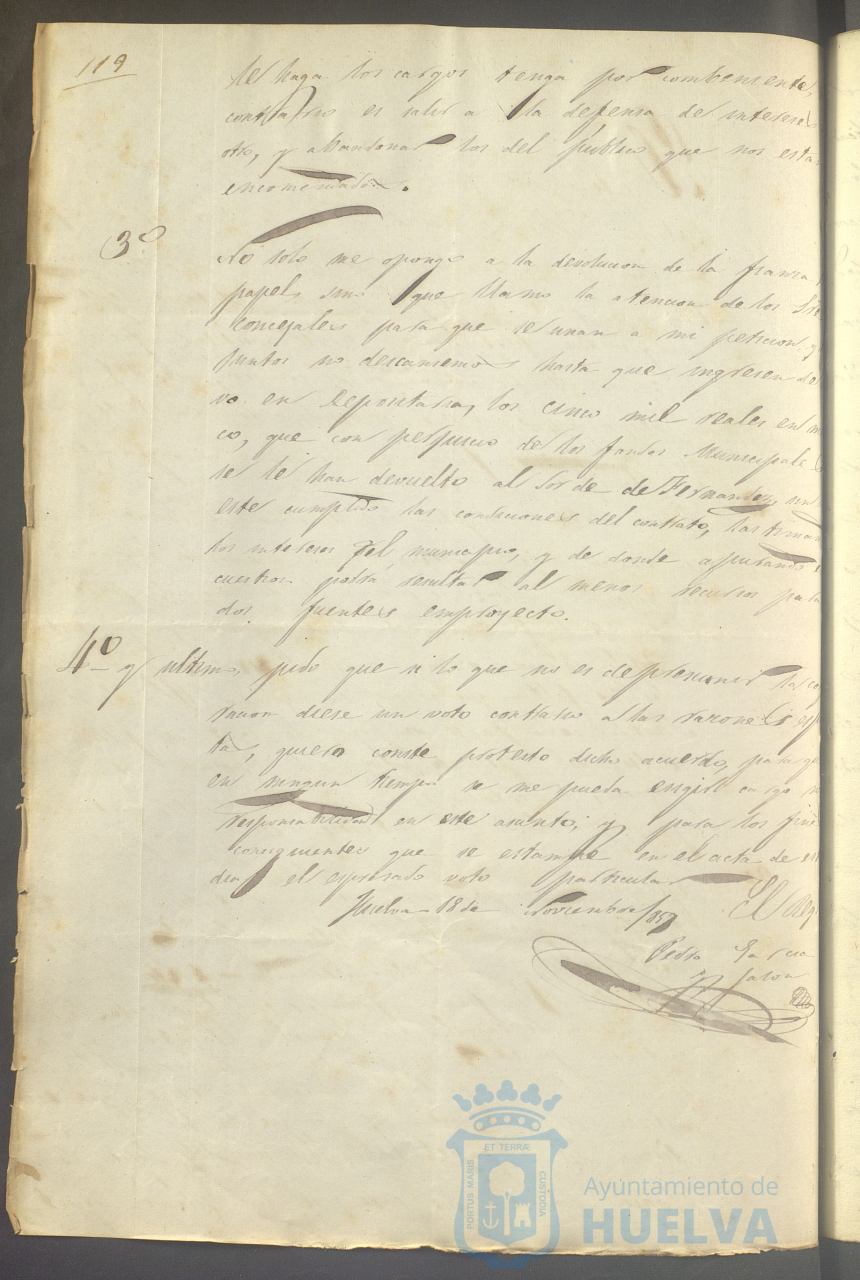 119
le haga los cargos tenga por combeniente,
contrario es salir a la defensa de interese
otro, y abandonar los del público que nos esta
encomendado.
3º
No solo me opongo a la devolucion de la fianza
papel, sino que llamo la atencion de los Sre
concejales para que se unan a mi peticion y
juntos no descansemos hasta que ingresen de
vo en Depositaria, los cinco mil reales en
co, que con perjuicio de los fondos Municipale
se le han devuelto al Sor de de Fernandez, sin
este cumplido las condiciones del contrato,
los intereses del municipio, y de donde apurando
cuestion podrá resultar al menos recursos para
dos fuentes emproyecto.
4º y ultimo, pido que si lo que no es de presumir la co
racion diese un voto contrario a las razones esp
ta, quiero conste protesto dicho acuerdo, para qe
en ningun tiempo se me pueda exigir cargo
responsabilidad en este asunto; y para los fine
consiguientes que se estampe en el acta de es
dia el espresado voto particular
Huelva 18 de Noviembre 1857 El Reg
Pedro Garcia
y Jalon
ET TERRÆ
PORTUS MARIS
CUSTODIA
Ayuntamiento de
HUELVA